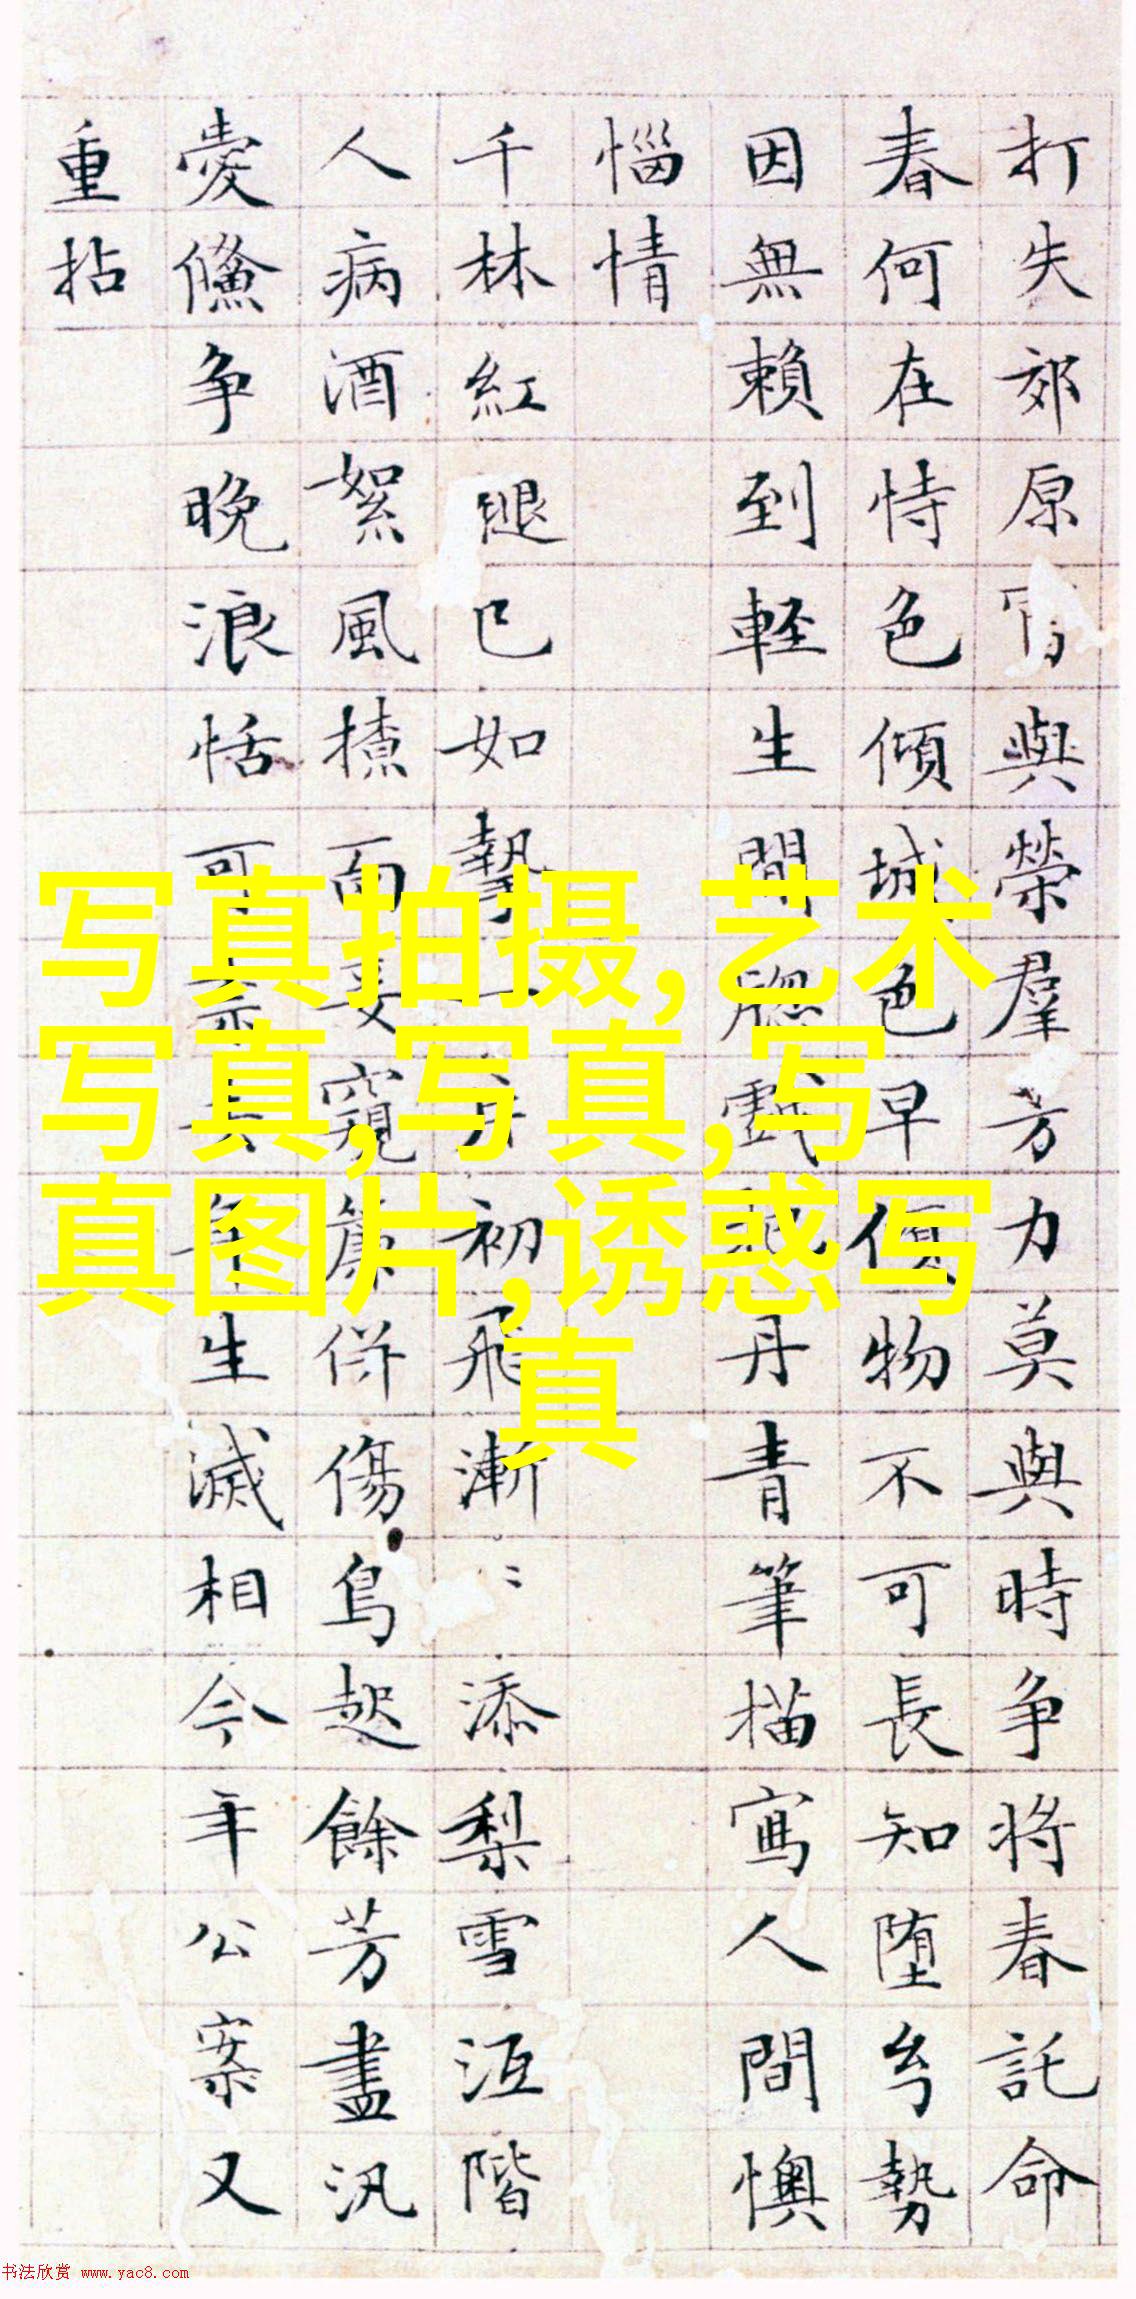 打失郊原與榮羣芳力莫與時争将春託命
春何在恃色傾城色早傾物不可長知堕勢
因無賴到軽生閒戲丹青筆描寫人間懊
惱情
千林紅褪已如初飛漸添梨雪沍階
人病酒絮風面窺簾併傷鳥起餘芳盡汎
愛鯈争晚浪恬可奈年生滅相今年公案又
重拈
写真拍摄,艺术
写真,写真,写
真图片,诱惑写
真
书法欣赏 www.yac8.com